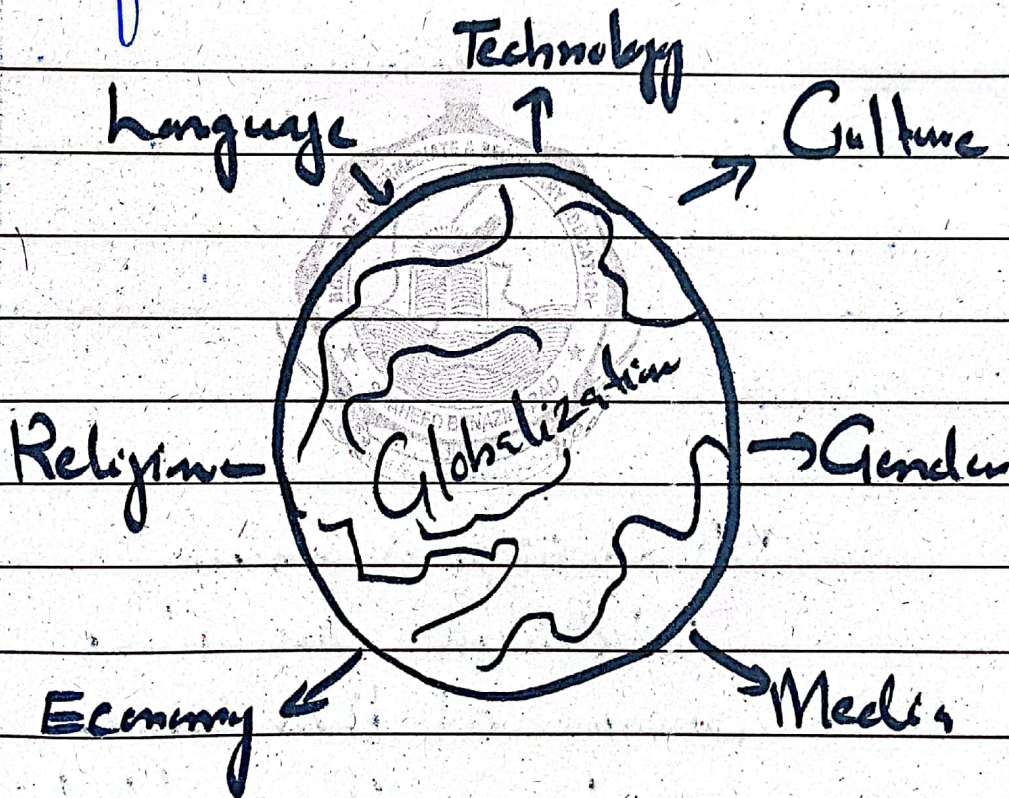 Technology
Language
Culture
Globalization
Religion
Gender
Economy
Media